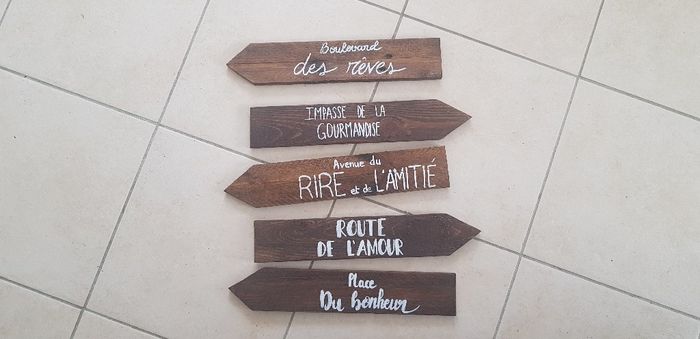 Boulevard
des rêves
IMPASSE DE LA
GOURMANDISE
Avenue du
RIRE et de L'AMITIÉ
ROUTE
DE L'AMOUR
Place
Du bonheur